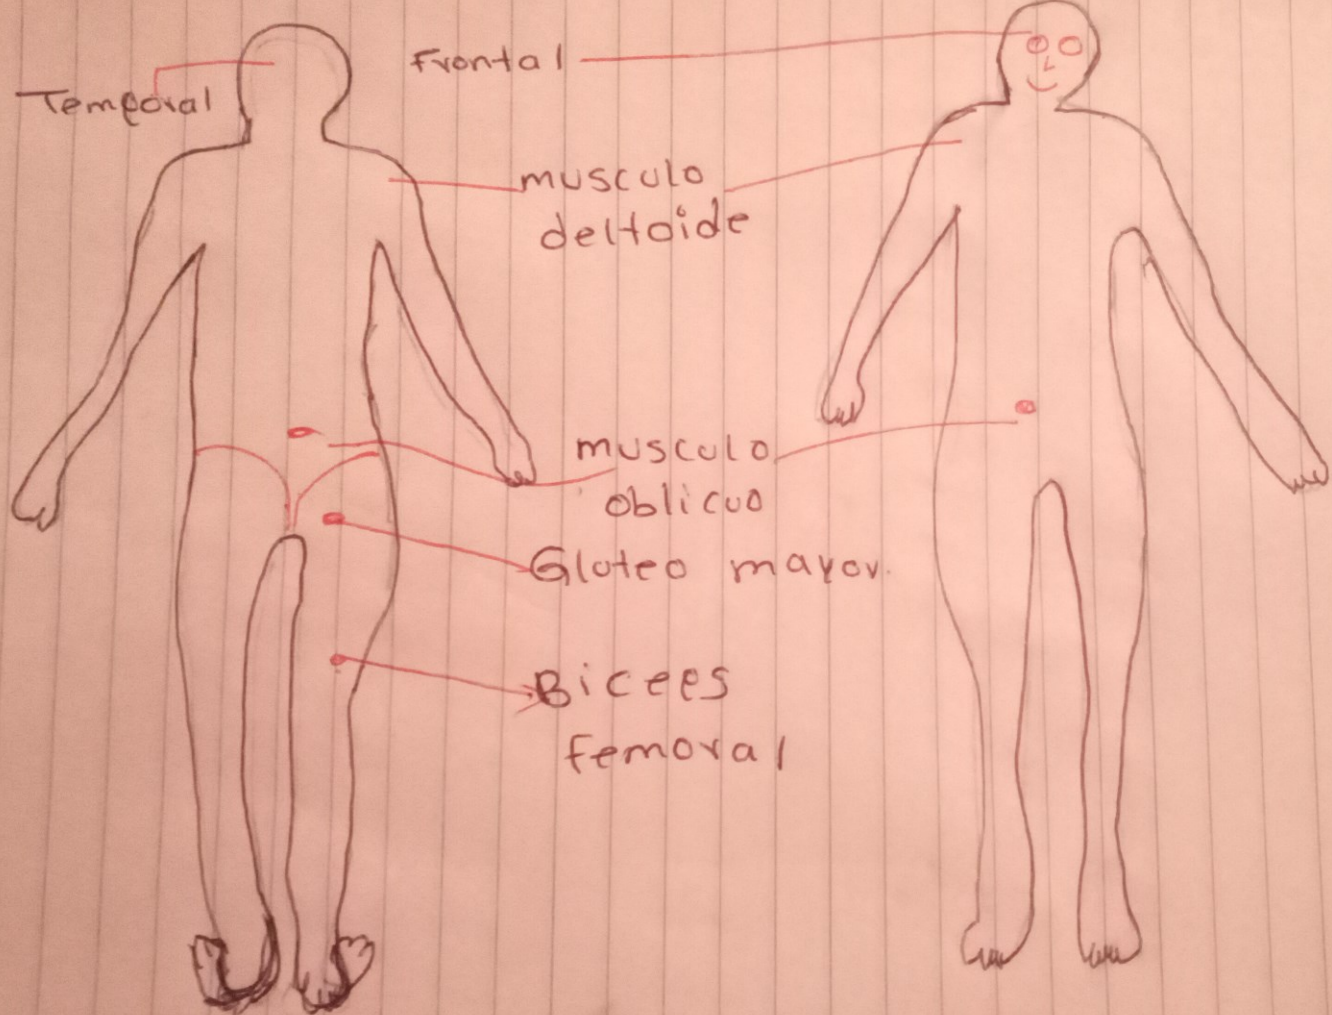 Frontal
Temporal
musculo
deltoide
musculo
oblicuo
Gluteo mayor.
Bicees
femoral